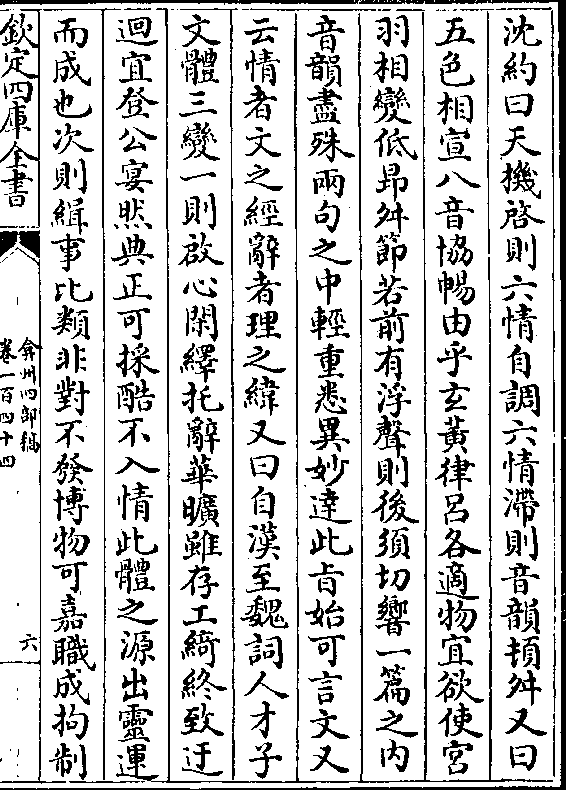 沈約曰天機啓則六情自調六情滯則音韻頓舛又曰
五色相宣八音協暢由乎玄黃律呂各適物宜欲使宮
羽相變低昻舛節若前有浮聲則後須切響一篇之内
音韻盡殊兩句之中輕重悉異妙達此㫖始可言文又
云情者文之經辭者理之緯又曰自漢至魏詞人才子
文體三變一則啟心閑繹托辭華曠雖存工綺終致迂
迴宜登公宴然典正可採酷不入情此體之源出靈運
而成也次則緝事比類非對不發博物可嘉職成拘制
欽定四庫全書
弇州四部稿
卷一百四十四
六